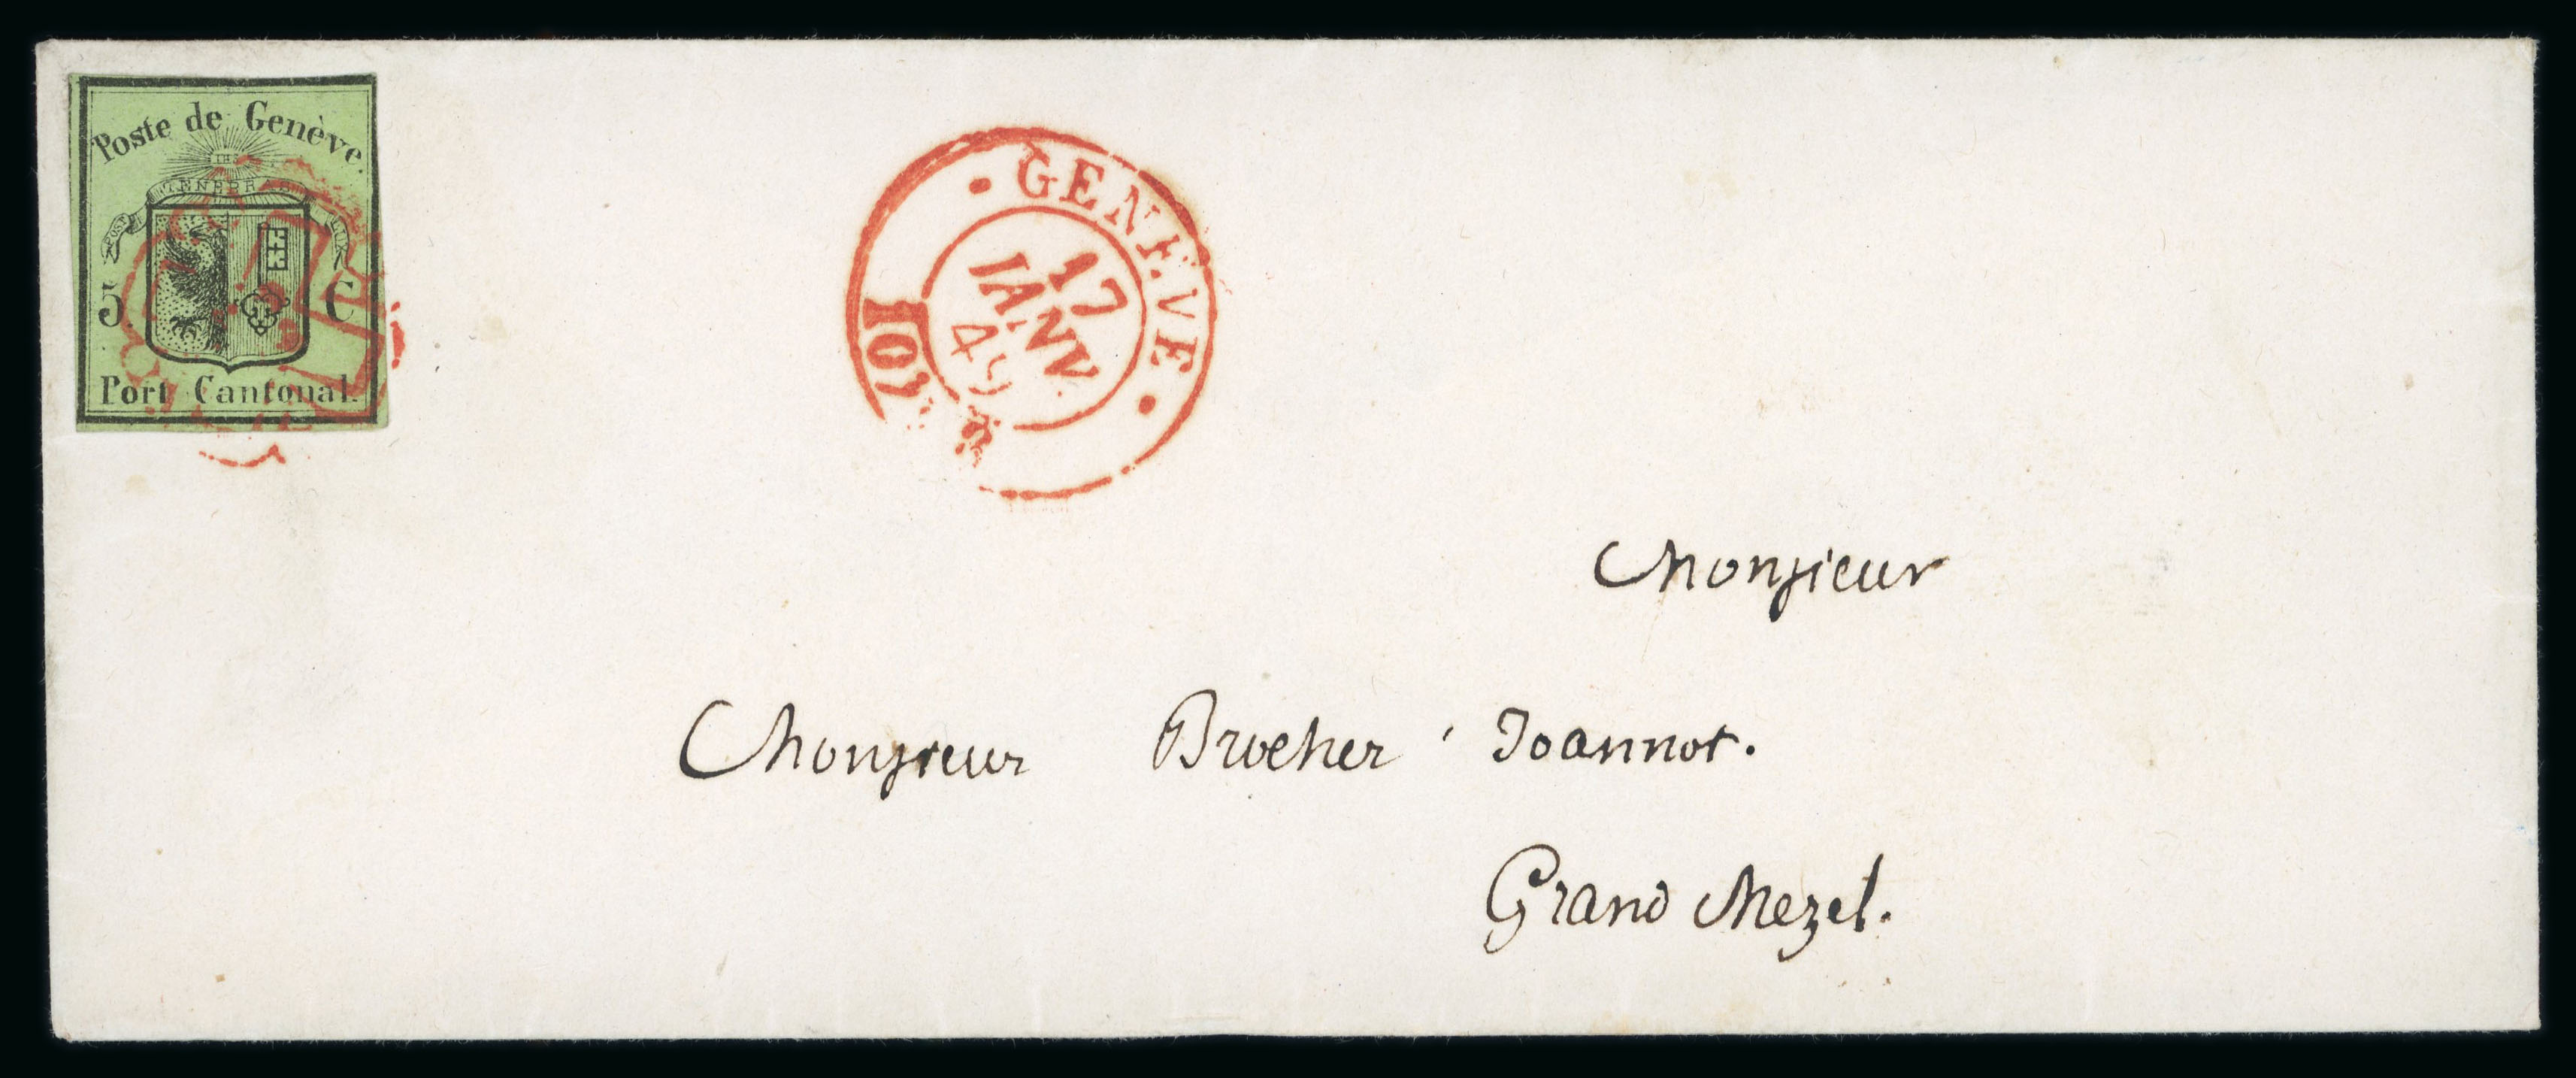 Poste de Genève
IHS
TENEBRAS
POST LUX
5. C
Port Cantonal.
• GENEVE •
17
JANV
49
10
Monsieur
Monsieur Brocher Joannot.
Grand Mezel.